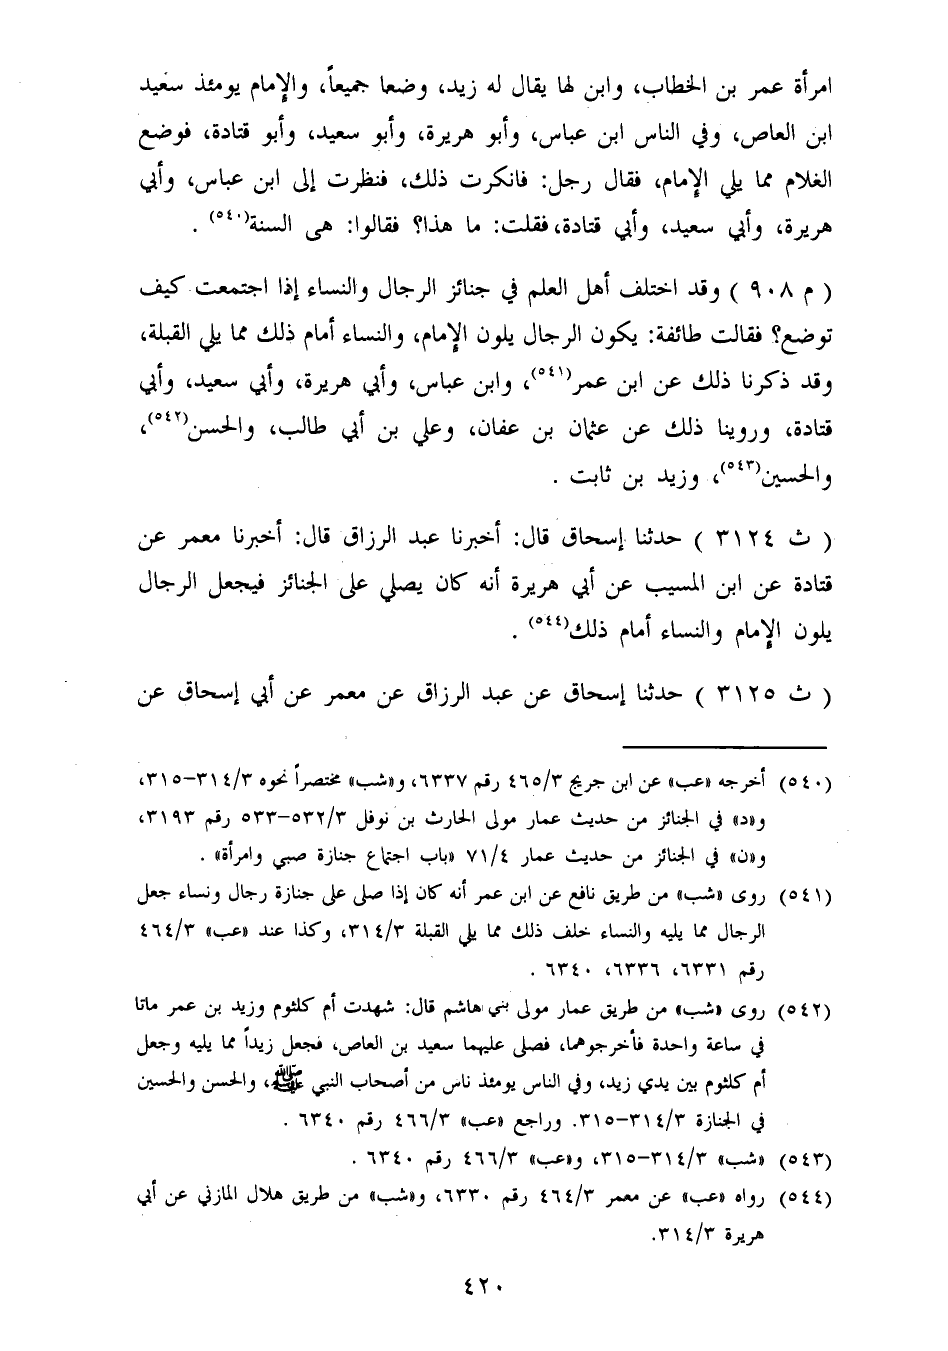 امرأة عمر بن الخطاب، وابن لها يقال له زيد، وضعا جميعاً، والإمام يومئذ سعيد
ابن العاص، وفي الناس ابن عباس، وأبو هريرة، وأبو سعيد، وأبو قتادة، فوضع
الغلام مما يلي الإمام، فقال رجل: فانكرت ذلك، فنظرت إلى ابن عباس، وأبي
هريرة، وأبي سعيد، وأبي قتادة، فقلت: ما هذا؟ فقالوا: هى السنة(٥٤٠) .
( م ٩٠٨ ) وقد اختلف أهل العلم في جنائز الرجال والنساء إذا اجتمعت كيف
توضع؟ فقالت طائفة: يكون الرجال يلون الإمام، والنساء أمام ذلك مما يلي القبلة،
وقد ذكرنا ذلك عن ابن عمر(٥٤١)، وابن عباس، وأبي هريرة، وأبي سعيد، وأبي
قتادة، وروينا ذلك عن عثمان بن عفان، وعلي بن أبي طالب، والحسن(٥٤٢)،
والحسين(٥٤٣)، وزيد بن ثابت .
( ث ٣١٢٤ ) حدثنا إسحاق قال: أخبرنا عبد الرزاق قال: أخبرنا معمر عن
قتادة عن ابن المسيب عن أبي هريرة أنه كان يصلي على الجنائز فيجعل الرجال
يلون الإمام والنساء أمام ذلك(٥٤٤) .
( ث ٣١٢٥ ) حدثنا إسحاق عن عبد الرزاق عن معمر عن أبي إسحاق عن
(٥٤٠) أخرجه «عب» عن ابن جريج ٤٦٥/٣ رقم ٦٣٣٧، و«شب» مختصراً نحوه ٣١٤/٣-٣١٥،
و«د» في الجنائز من حديث عمار مولى الحارث بن نوفل ٥٣٢/٣-٥٣٣ رقم ٣١٩٣،
و«ن» في الجنائز من حديث عمار ٧١/٤ «باب اجتماع جنازة صبي وامرأة» .
(٥٤١) روى «شب» من طريق نافع عن ابن عمر أنه كان إذا صلى على جنازة رجال ونساء جعل
الرجال مما يليه والنساء خلف ذلك مما يلي القبلة ٣١٤/٣، وكذا عند «عب» ٤٦٤/٣
رقم ٦٣٣١، ٦٣٣٦، ٦٣٤٠ .
(٥٤٢) روى «شب» من طريق عمار مولى بني هاشم قال: شهدت أم كلثوم وزيد بن عمر ماتا
في ساعة واحدة فأخرجوهما، فصلى عليهما سعيد بن العاص، فجعل زيداً مما يليه وجعل
أم كلثوم بين يدي زيد، وفي الناس يومئذ ناس من أصحاب النبي ﷺ، والحسن والحسين
في الجنازة ٣١٤/٣-٣١٥. وراجع «عب» ٤٦٦/٣ رقم ٦٣٤٠ .
(٥٤٣) «شب» ٣١٤/٣-٣١٥، و«عب» ٤٦٦/٣ رقم ٦٣٤٠ .
(٥٤٤) رواه «عب» عن معمر ٤٦٤/٣ رقم ٦٣٣٠، و«شب» من طريق هلال المازني عن أبي
هريرة ٣١٤/٣.
٤٢٠